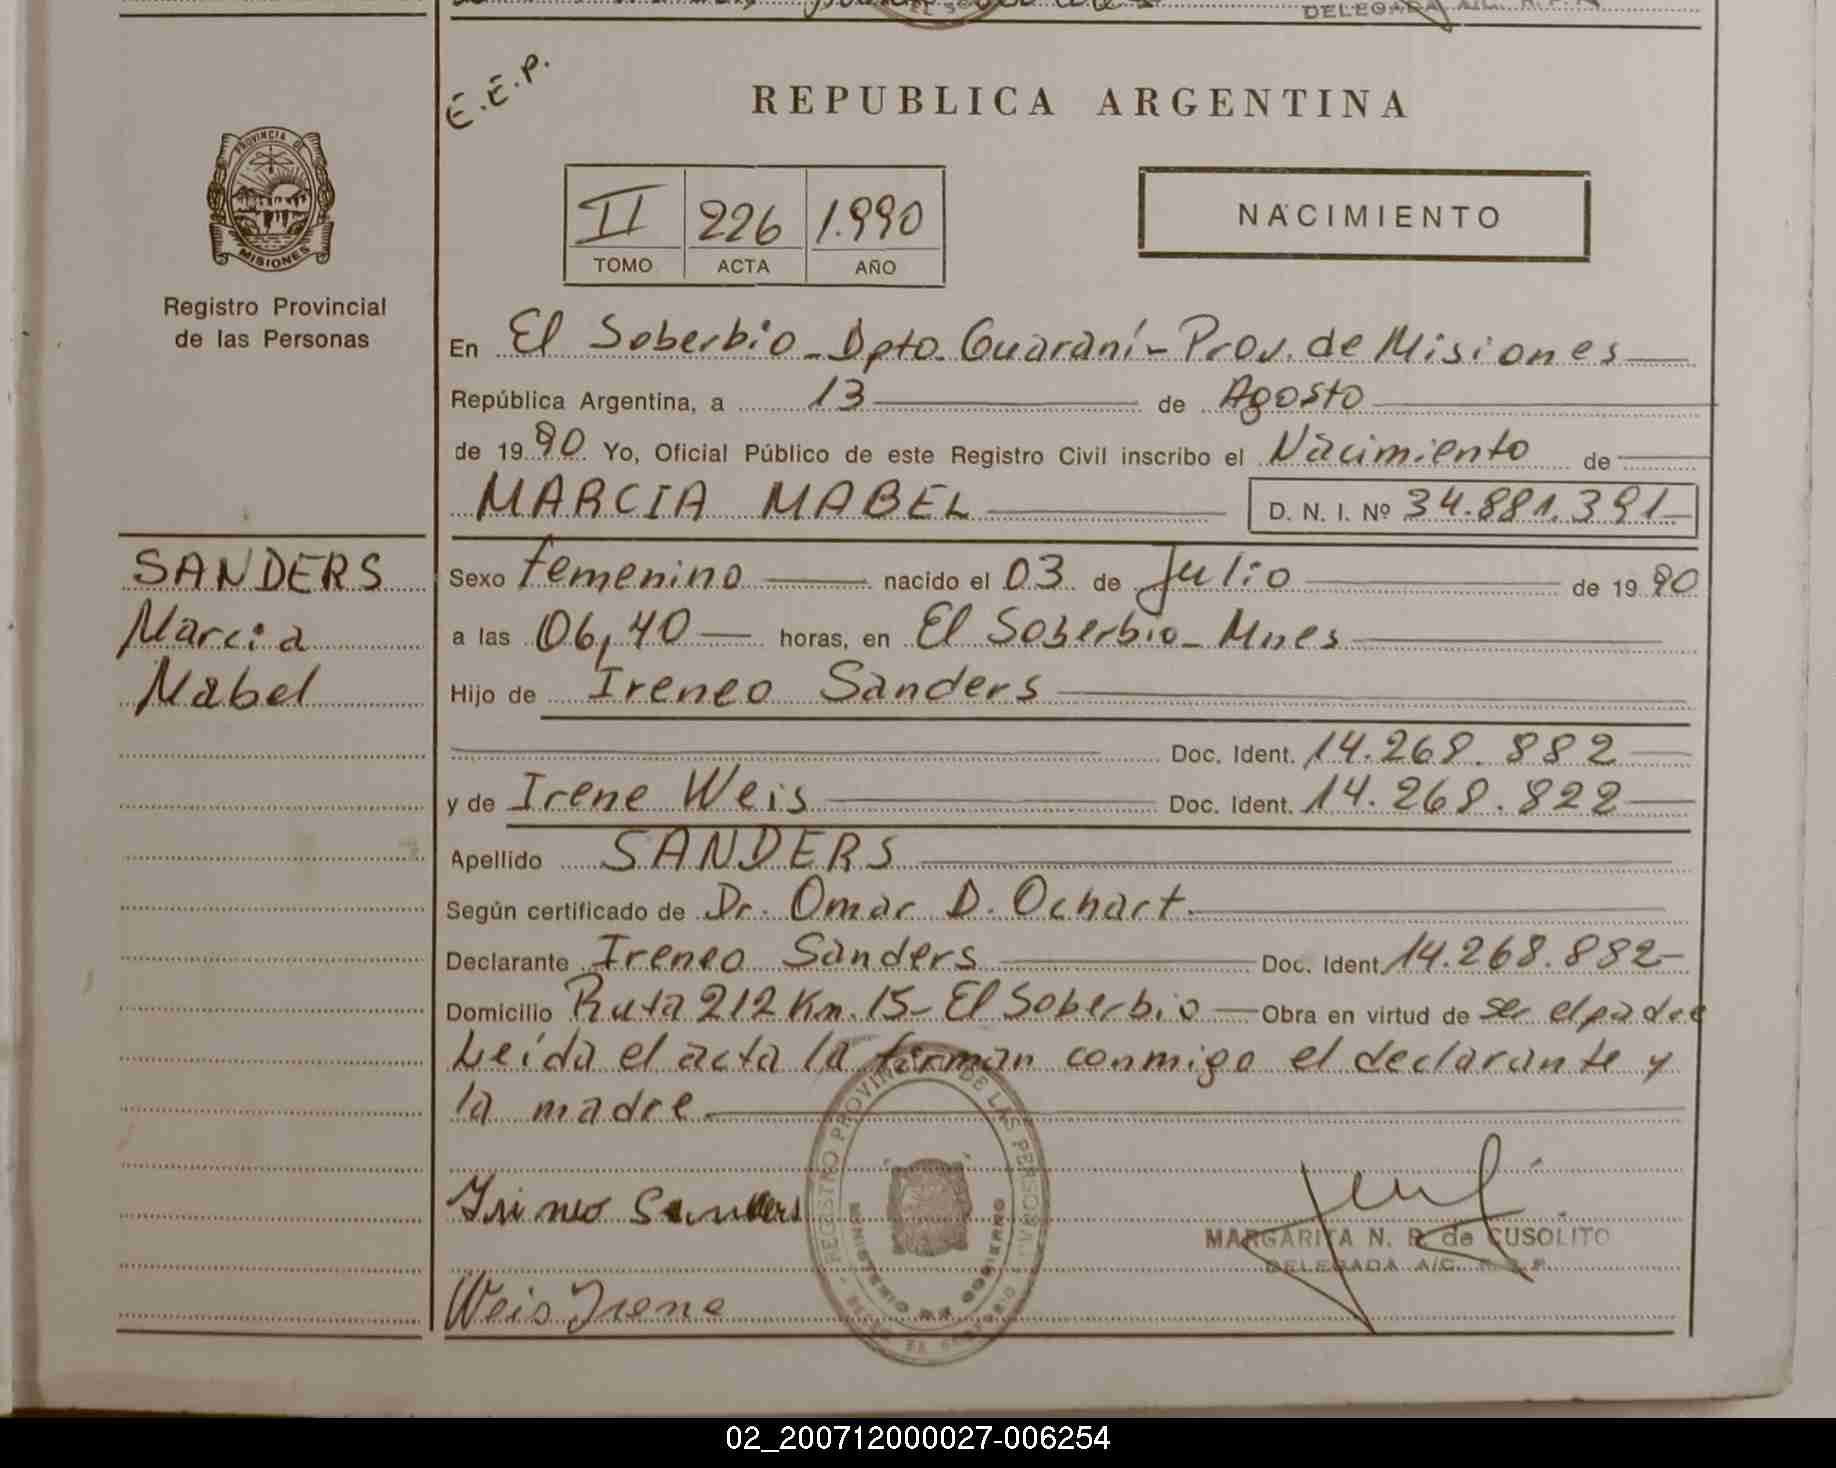 DELEGADA A/C. R.P.P.
E.E.P.
REPUBLICA ARGENTINA
PROVINCIA DE
MISIONES
II 226 1.990
TOMO ACTA AÑO
NACIMIENTO
Registro Provincial
de las Personas
En El Soberbio - Dpto. Guaraní - Prov. de Misiones
República Argentina, a 13 de Agosto
de 1990 Yo, Oficial Público de este Registro Civil inscribo el Nacimiento de
MARCIA MABEL D. N. I. Nº 34.881.391
SANDERS
Marcia
Mabel
Sexo femenino nacido el 03 de Julio de 1990
a las 06,40 horas, en El Soberbio - Mnes
Hijo de Ireneo Sanders
Doc. Ident. 14.268.882
y de Irene Weis Doc. Ident. 14.268.822
Apellido SANDERS
Según certificado de Dr. Omar D. Ochart.
Declarante Ireneo Sanders Doc. Ident. 14.268.882
Domicilio Ruta 212 Km. 15 - El Soberbio Obra en virtud de ser el padre
Leída el acta la firman conmigo el declarante y
la madre.
REGISTRO PROVINCIAL DE LAS PERSONAS
MINISTERIO DE GOBIERNO
Irineo Sanders
MARGARITA N. P. de CUSOLITO
DELEGADA A/C. R.P.P.
Weis Irene
02_200712000027-006254